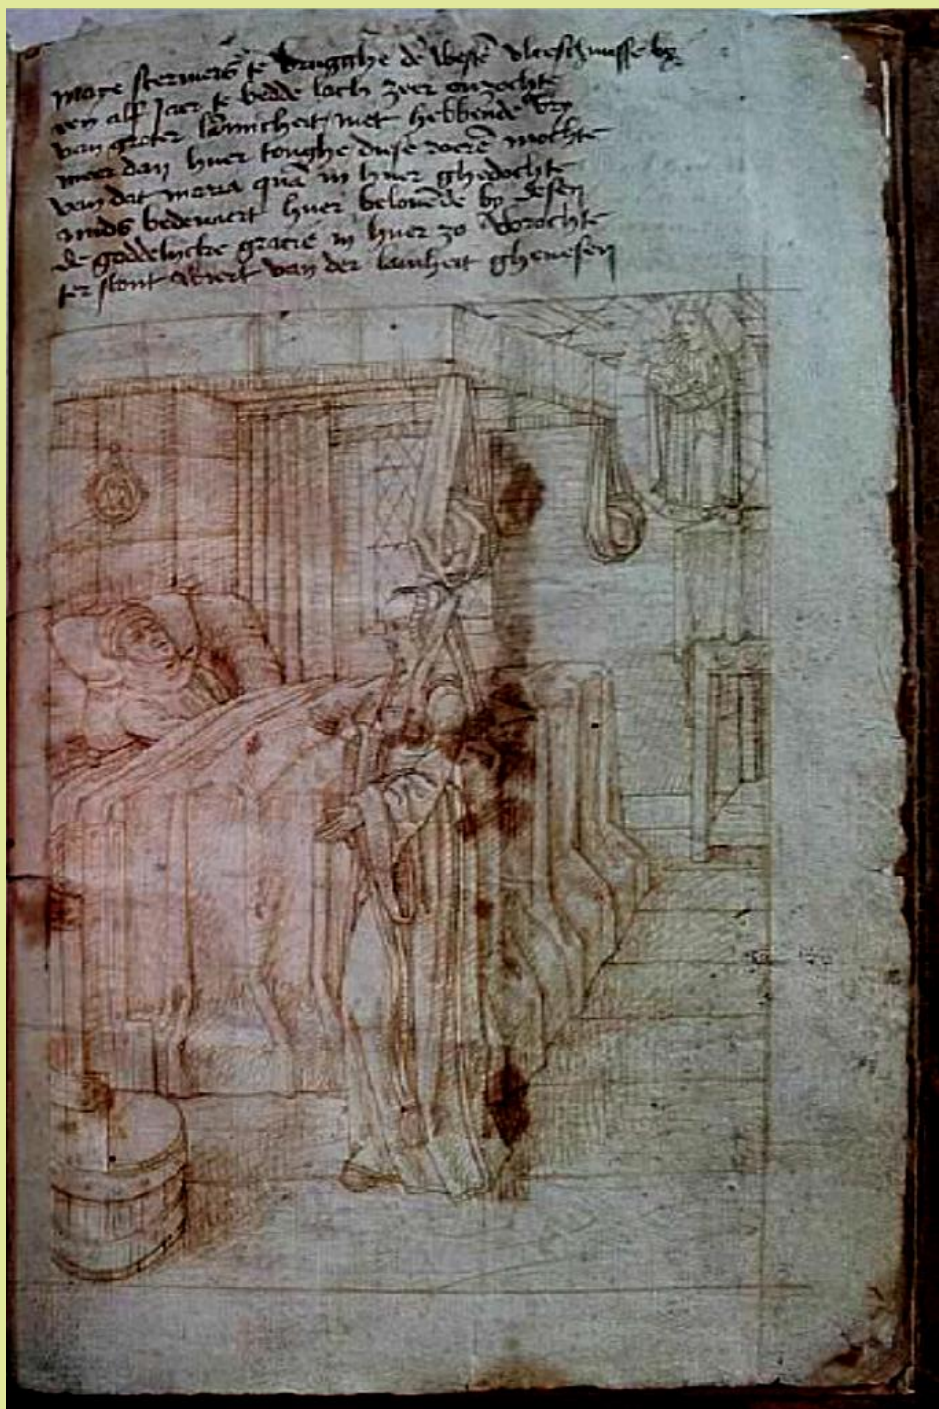 maye stervers te brugghe de weste vleeschuusse by
een alf Jaer te bedde lach zeer onzochte
van groter lamicheit niet hebbende vry
meer dan huer tonghe diese roere mochte
van dat maria qua in huer ghedochte
mids bedevaert huer belovede by desen
de goddelicke gracie in huer zo wrochte
ter stont wert van der lamheit ghenesen